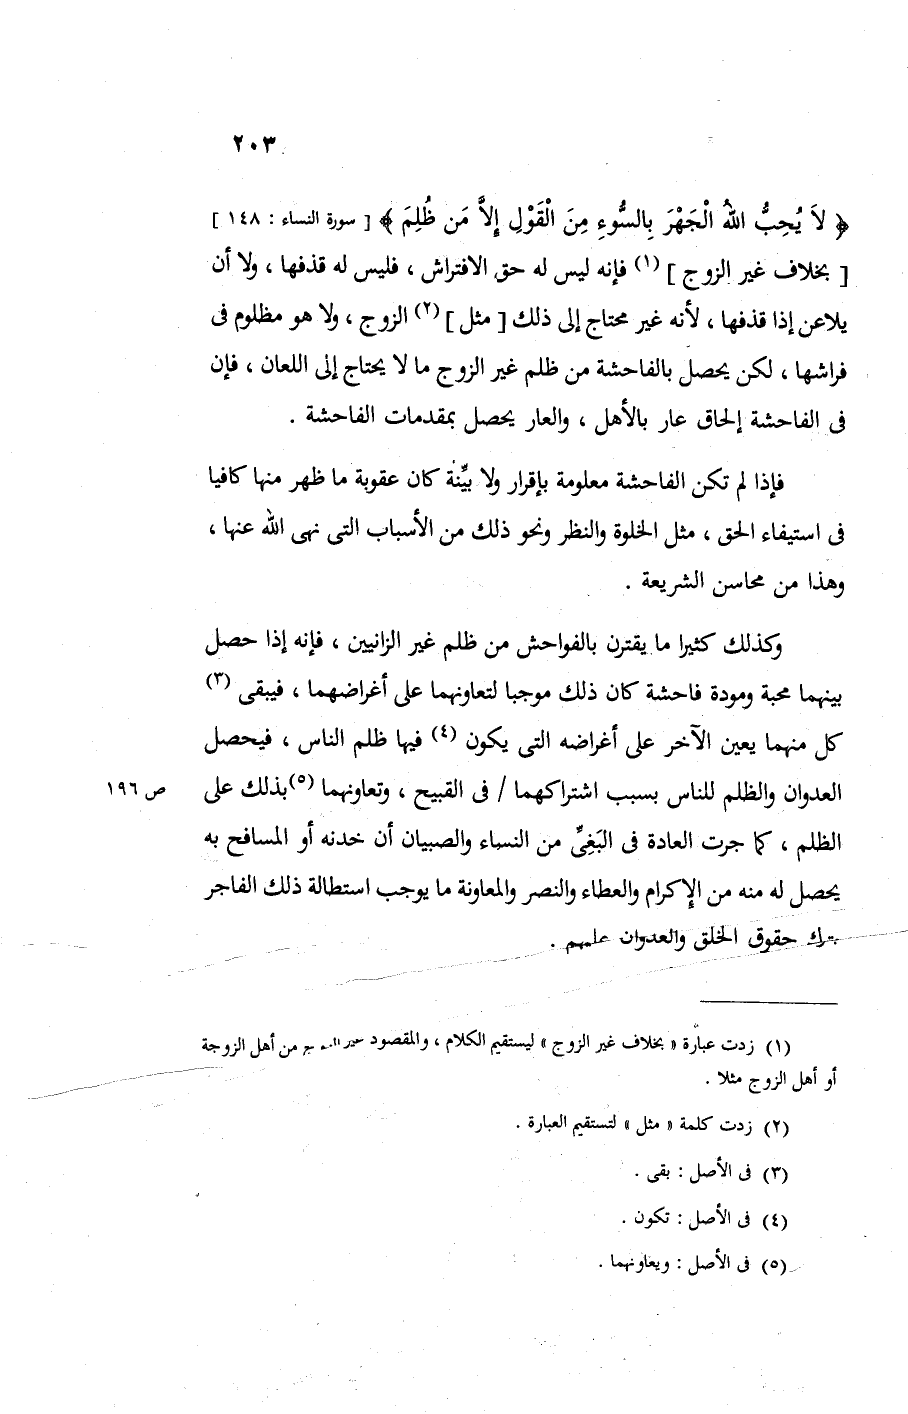 ٢٠٣
﴿ لاَ يُحِبُّ اللهُ الْجَهْرَ بِالسُّوءِ مِنَ الْقَوْلِ إِلاَّ مَن ظُلِمَ ﴾ [ سورة النساء : ١٤٨ ]
[ بخلاف غير الزوج ] (١) فإنه ليس له حق الافتراش ، فليس له قذفها ، ولا أن
يلاعن إذا قذفها ، لأنه غير محتاج إلى ذلك [ مثل ] (٢) الزوج ، ولا هو مظلوم فى
فراشها ، لكن يحصل بالفاحشة من ظلم غير الزوج ما لا يحتاج إلى اللعان ، فإن
فى الفاحشة إلحاق عار بالأهل ، والعار يحصل بمقدمات الفاحشة .
فإذا لم تكن الفاحشة معلومة بإقرار ولا بيِّنة كان عقوبة ما ظهر منها كافيا
فى استيفاء الحق ، مثل الخلوة والنظر ونحو ذلك من الأسباب التى نهى الله عنها ،
وهذا من محاسن الشريعة .
وكذلك كثيرا ما يقترن بالفواحش من ظلم غير الزانيين ، فإنه إذا حصل
بينهما محبة ومودة فاحشة كان ذلك موجبا لتعاونهما على أغراضهما ، فيبقى (٣)
كل منهما يعين الآخر على أغراضه التى يكون (٤) فيها ظلم الناس ، فيحصل
العدوان والظلم للناس بسبب اشتراكهما / فى القبيح ، وتعاونهما (٥) بذلك على
ص ١٩٦
الظلم ، كما جرت العادة فى البَغِىِّ من النساء والصبيان أن خدنه أو المسافح به
يحصل له منه من الإكرام والعطاء والنصر والمعاونة ما يوجب استطالة ذلك الفاجر
بترك حقوق الخلق والعدوان عليهم .
(١) زدت عبارة « بخلاف غير الزوج » ليستقيم الكلام ، والمقصود غير من أهل الزوجة
أو أهل الزوج مثلا .
(٢) زدت كلمة « مثل » لتستقيم العبارة .
(٣) فى الأصل : بقى .
(٤) فى الأصل : تكون .
(٥) فى الأصل : ويعاونهما .